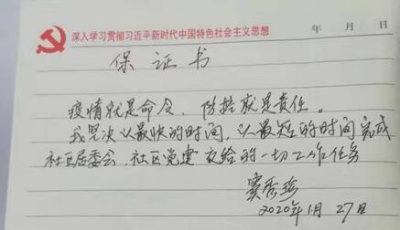 深入学习贯彻习近平新时代中国特色社会主义思想 年 月 日
保证书
疫情就是命令，防控就是责任。
我坚决以最快的时间，以最短的时间完成
社区居委会、社区党建交给的一切工作任务
窦秀珍
2020年1月27日